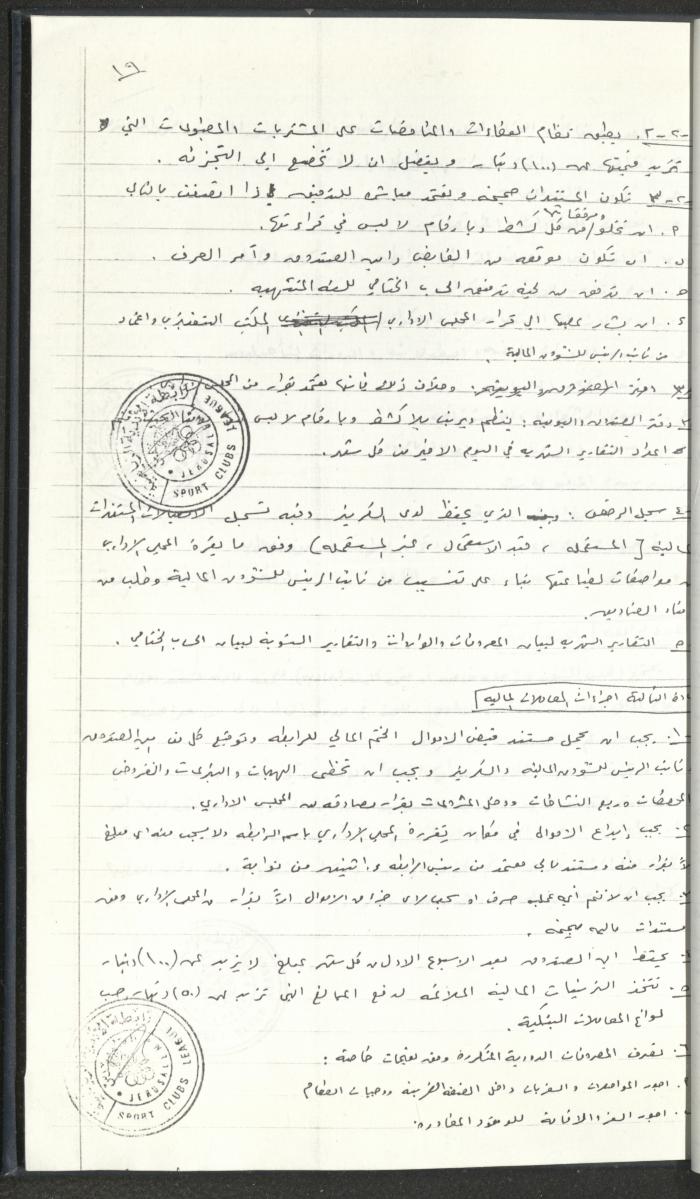 ١٩
٢-٢. يطبق نظام العطاءات والمناقصات على المشتريات والمطبوعات التي
تزيد قيمتها عن (١٠٠) دينار ويفضل ان لا تخضع الى التجزئه.
٢-٣ تكون المستندات صحيحه وتعتمد مباشره للتدقيق اذا اتصفت بالتالي
ومرفقاتها
٢. ان تخلو من كل كشط وبارقام لا لبس في قراءتها.
ب. ان تكون موقعه من القابض وامين الصندوق وآمر الصرف.
ج. ان تدقق من لجنة تدقيق الحساب الختامي للسنه المنتهيه.
د. ان يشار عليها الى قرار المجلس الاداري المكتب التنفيذي واعتماد
من نائب الرئيس للشؤون المالية.
وخلاف ذلك فانها تعتمد بقرار من المجلس
٣ دفتر الصندوق واليوميه: ينظم ويرتب بلا كشط وبارقام لا لبس
اعداد التقارير الشهريه في اليوم الاخير من كل شهر.
٤ سجل الرخص: الذي يحفظ لدى السكرتير وفيه تسجل المستندات
المالية [المستعمله، قيد الاستعمال، غير المستعمله) وفق ما يقرة المجلس الاداري
من مواصفات لطباعتها بناء على تنسيب من نائب الرئيس للشؤون المالية وطلب من
امناء الصناديق.
٥ التقارير الشهريه لبيان المصروفات والواردات والتقارير السنوية لبيان الحساب الختامي.
المادة الثالثة اجراءات المعاملات الماليه
١. يجب ان يحمل مستند قبض الاموال الختم المالي للرابطه وتوقيع كل من امين الصندوق
ونائب الرئيس للشؤون الماليه والسكرتير ويجب ان تحظى الهبات والتبرعات والقروض
والمخصصات وريع النشاطات ودخل المشروعات بقرار مصادقه من المجلس الاداري.
٢. يجب إيداع الاموال في مكان يقررة المجلس الاداري باسم الرابطه ولا يسحب منه اي مبلغ
الا بقرار منه ومستند مالي معتمد من رئيس الرابطه واثنين من نوابة.
٣. يجب ان لا تتم أي عملية صرف او سحب لاي جزء من الاموال الاّ بقرار من المجلس الاداري وفق
مستندات ماليه صحيحه.
٤. يحتفظ امين الصندوق بعد الاسبوع الاول من كل شهر بمبلغ لا يزيد عن (١٠٠) دينار
٥. تتخذ الترتيبات الماليه الملائمه لدفع المبالغ التي تزيد عن (٥٠) دينار حسب
لوائح المعاملات البنكية.
٦. تصرف المصروفات الدورية المتكررة وفق تعليمات خاصة:
٢. اجور المواصلات والسفريات داخل الضفه الغربيه ووجبات الطعام
ب. اجور السفر والاقامة للوفود المغادره.
رابطة الاندية
JERUSALEM
SPORT CLUBS LEAGUE
رابطة الاندية
JERUSALEM
SPORT CLUBS LEAGUE